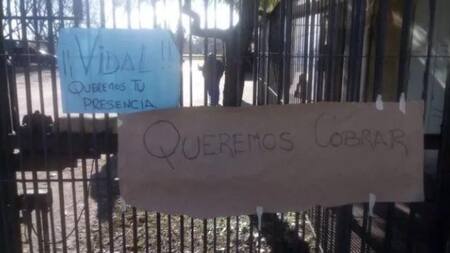 ¡¡VIDAL!!
QUEREMOS TU
PRESENCIA
QUEREMOS COBRAR